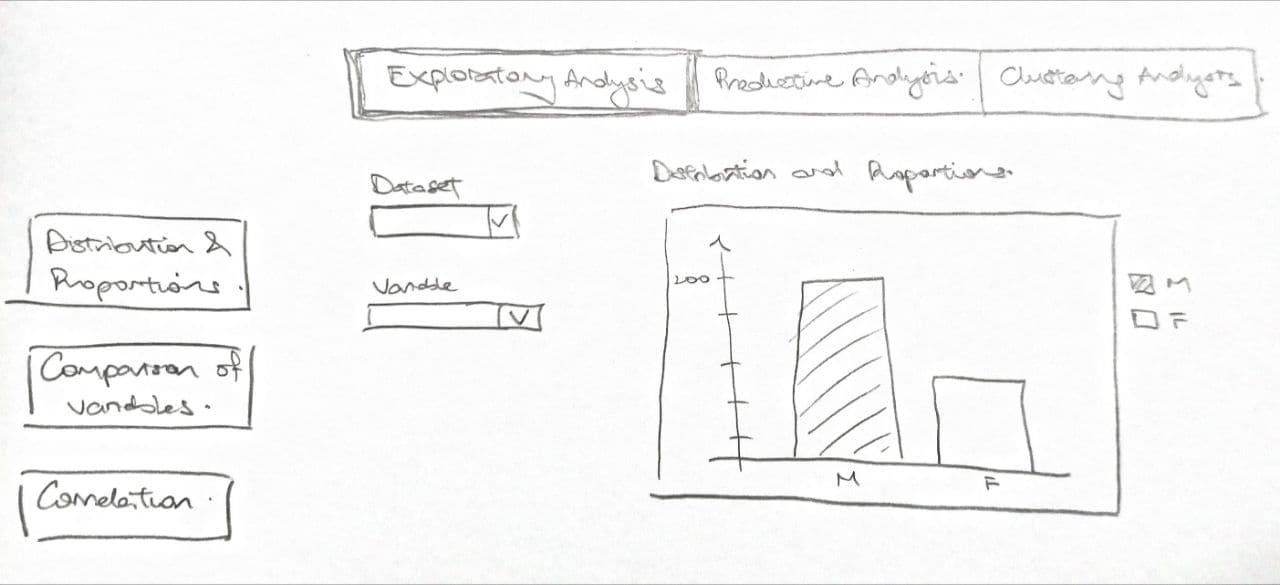 Exploratory Analysis
Predictive Analysis.
Clustering Analysis
Distribution &
Proportions.
Comparison of
variables.
Correlation.
Dataset
Variable
Distribution and Proportions.
200
M
F
M
F